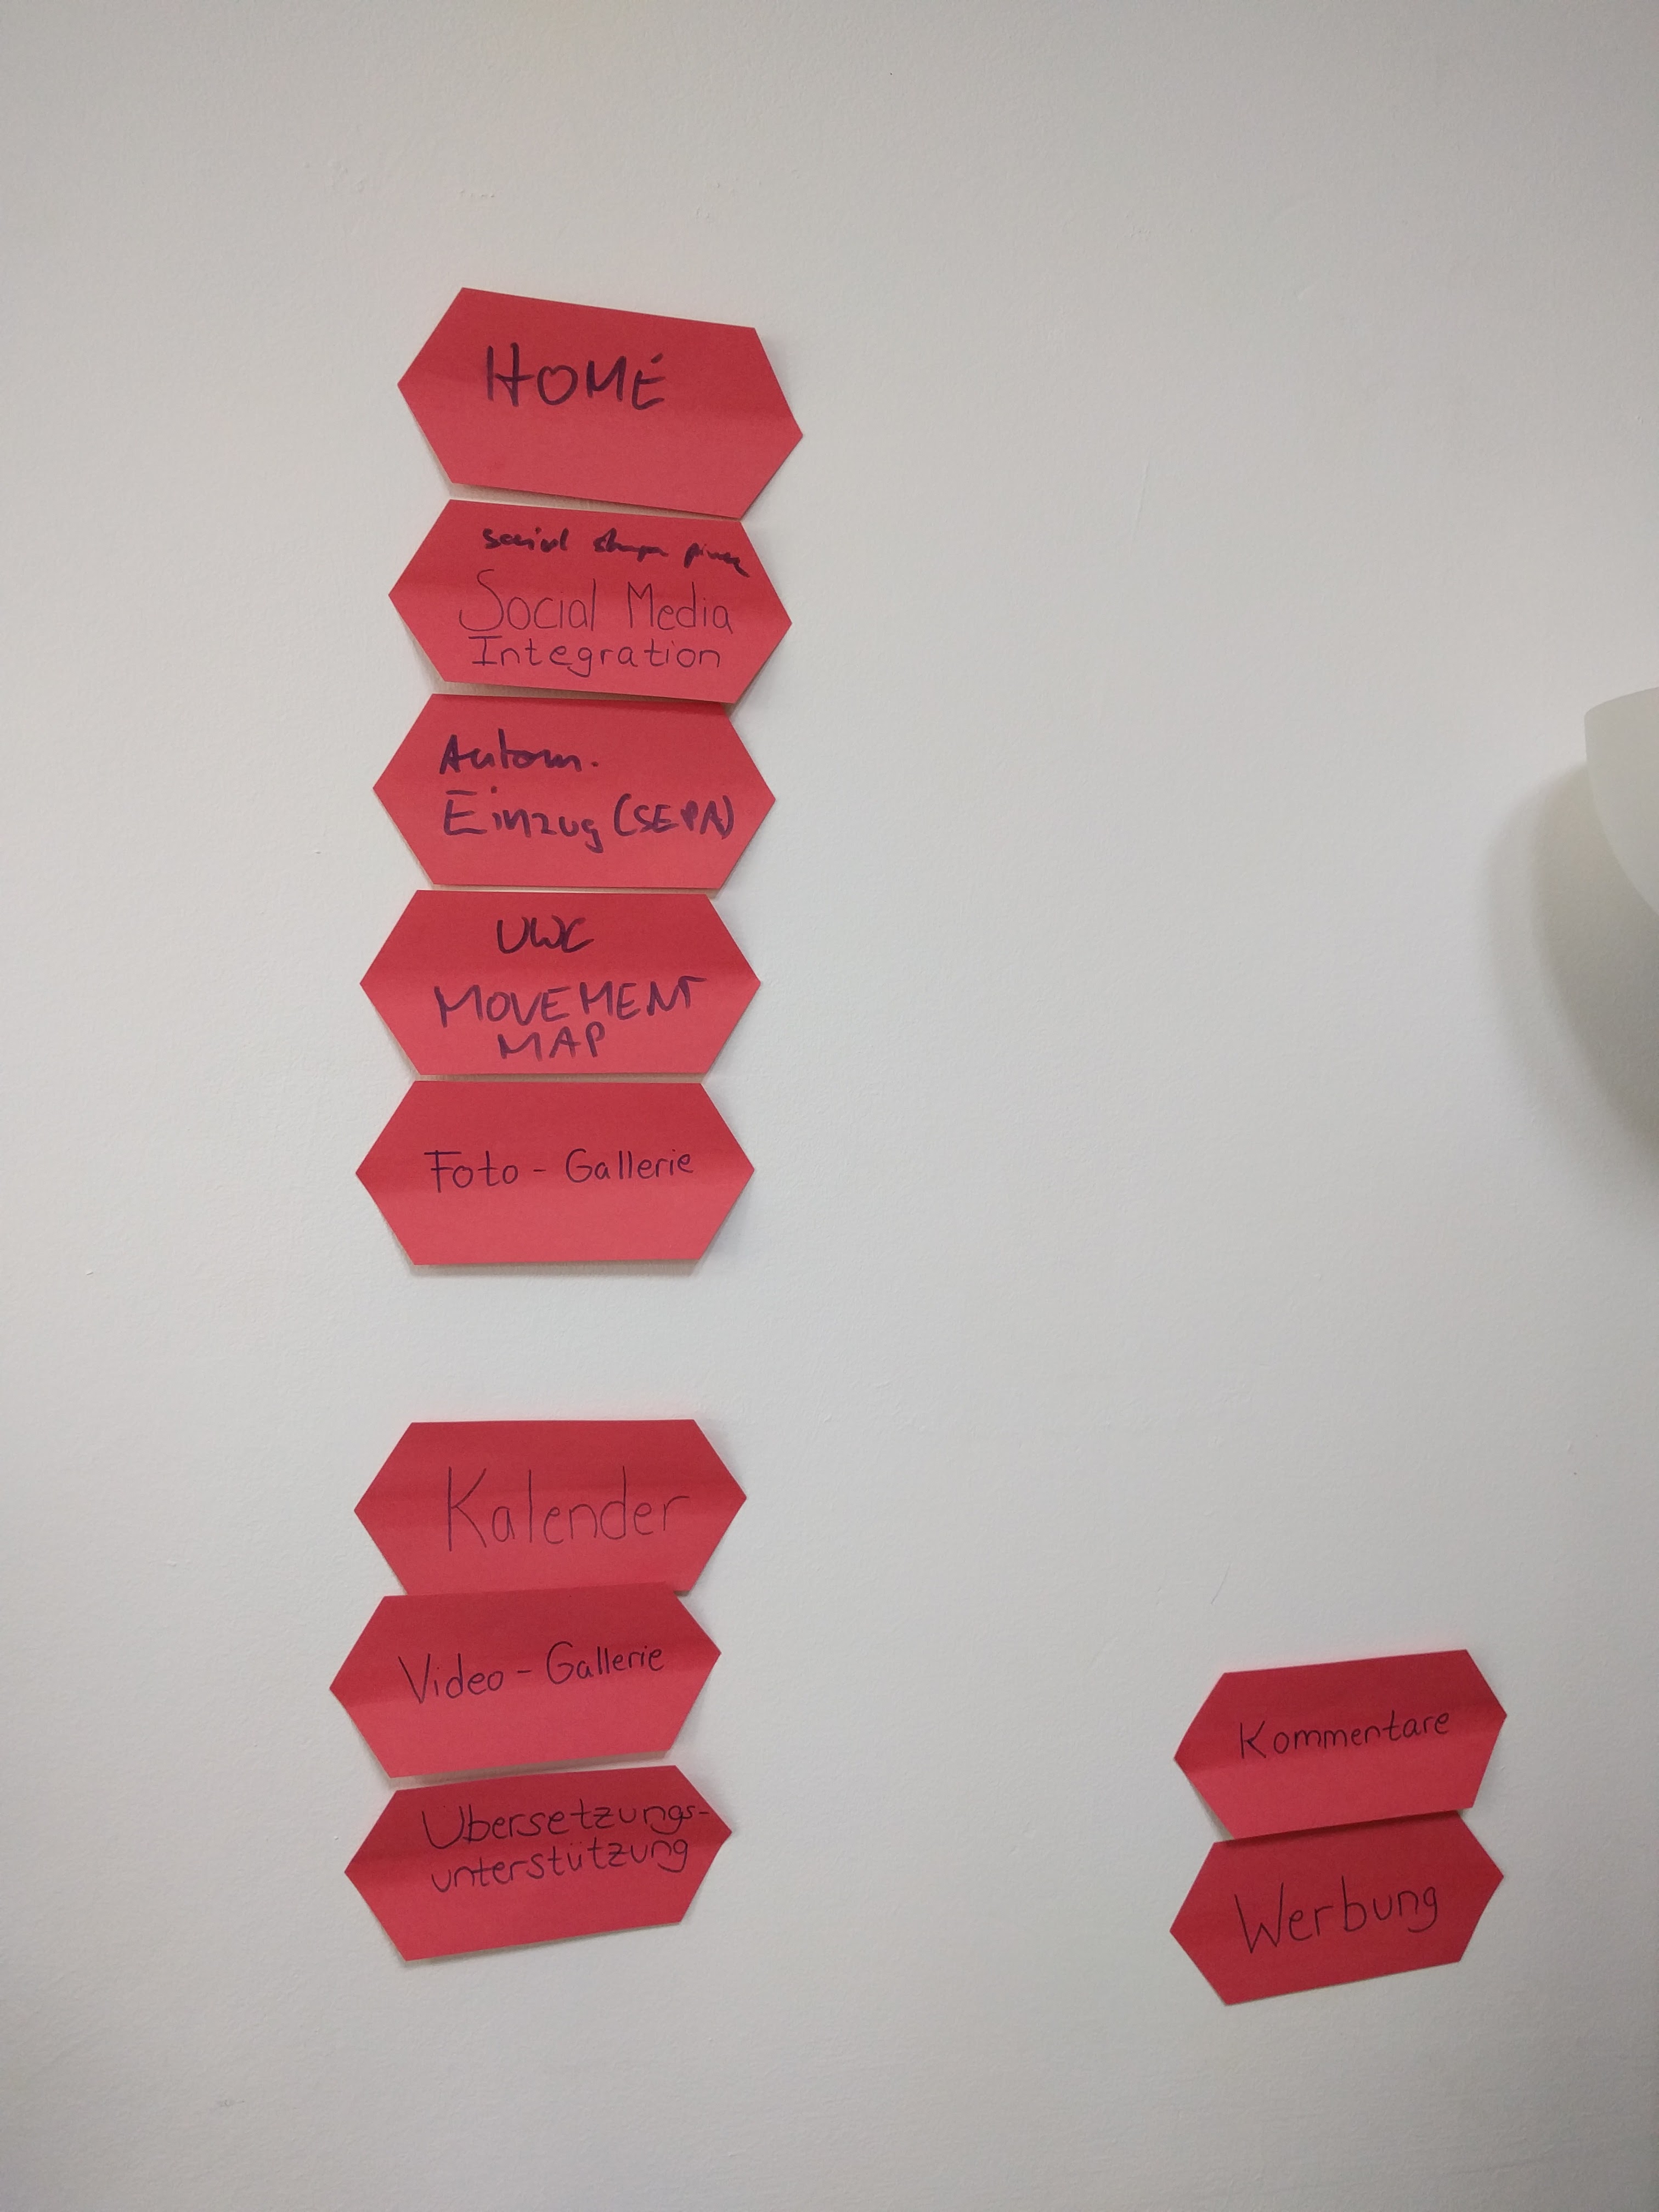 HOME
social
Social Media
Integration
Autom.
Einzug (SEPA)
UWC
MOVEMENT
MAP
Foto - Gallerie
Kalender
Video - Gallerie
Übersetzungs-
unterstützung
Kommentare
Werbung